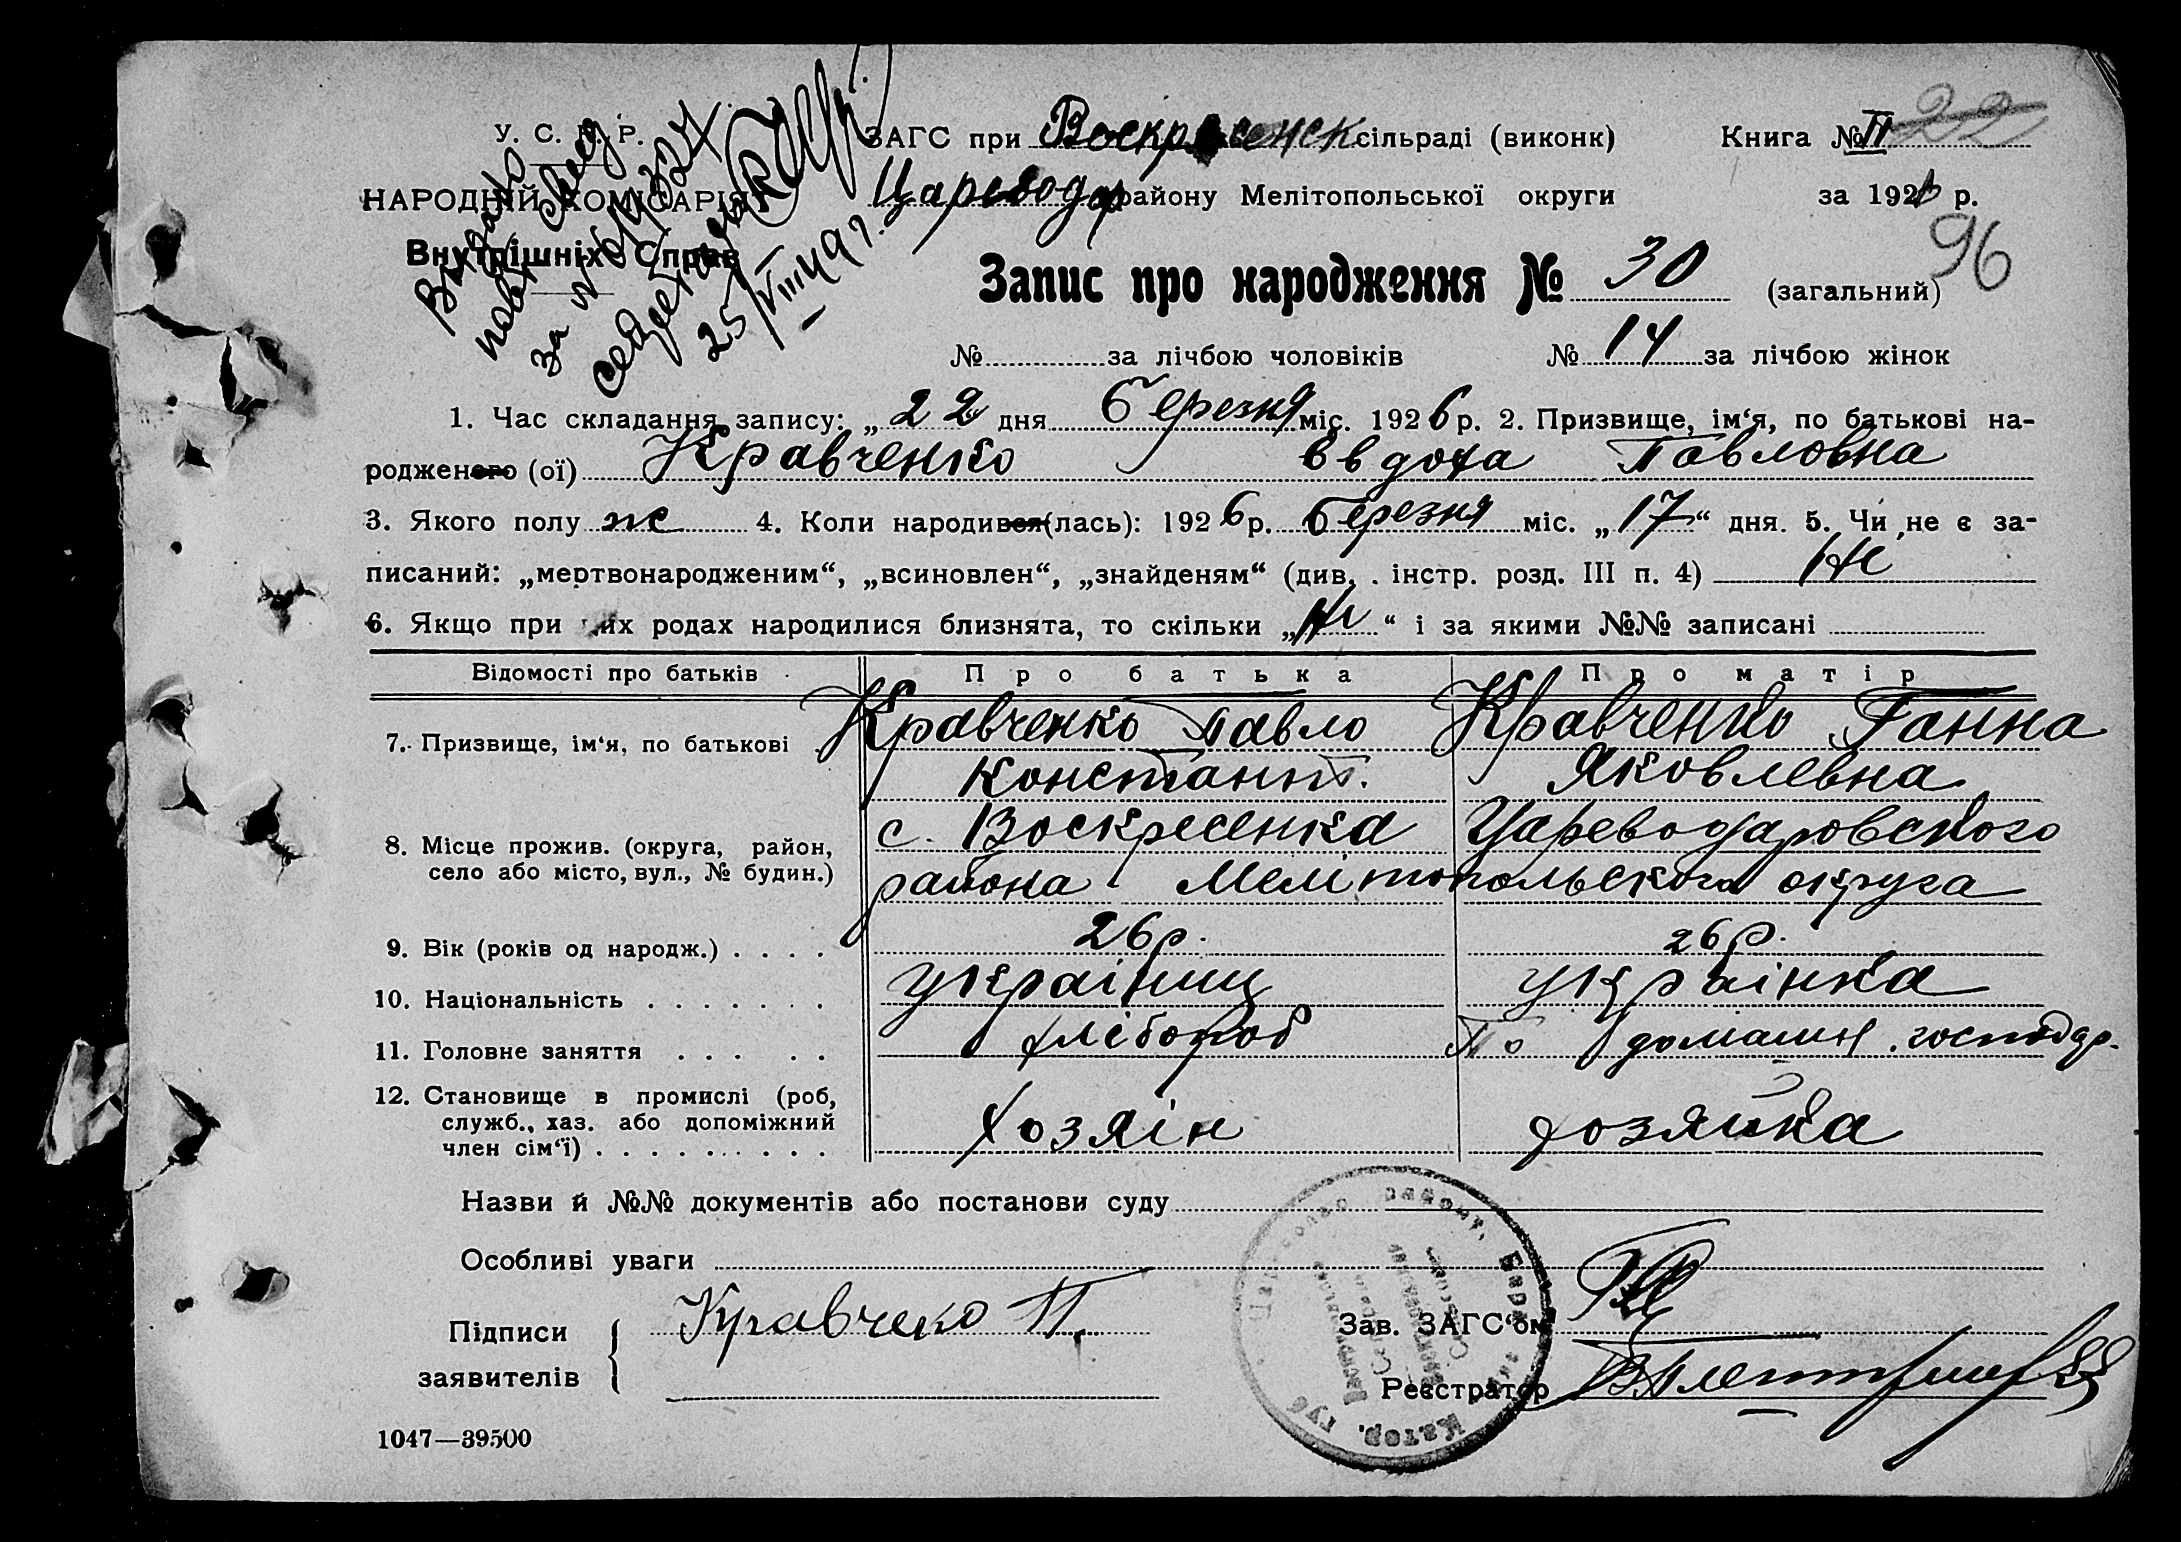 У. С. Р. Р.
НАРОДНІЙ КОМІСАРІЯТ
Внутрішніх Справ
Видано
повт. свід
за №
25/VIII 49 г.
ЗАГС при Воскресенск сільраді (виконк)
Книга № II 22
Цареводар району Мелітопольської округи
за 1926 р.
96
Запис про народження № 30 (загальний)
№ за лічбою чоловіків № 14 за лічбою жінок
1. Час складання запису: „22 дня березня міс. 1926 р. 2. Призвище, ім‘я, по батькові на-
родженого (ої) Кравченко Евдоха Павловна
3. Якого полу ж 4. Коли народився (лась): 1926 р. березня міс. „17“ дня. 5. Чи не є за-
писаний: „мертвонародженим“, „всиновлен“, „знайденям“ (див. . інстр. розд. III п. 4) Ні
6. Якщо при цих родах народилися близнята, то скільки „Ні“ і за якими №№ записані
Відомості про батьків Про батька Про матір
7. Призвище, ім‘я, по батькові Кравченко Павло Кравченко Ганна
Констант. Яковлевна
8. Місце прожив. (округа, район, с. Воскресенка Цареводаровского
село або місто, вул., № будин.) района Мелітопольского округа
9. Вік (років од народж.) . . . . 26 р. 26 р.
10. Національність . . . . . . . українець українка
11. Головне заняття . . . . . хлібороб По домашн. господар.
12. Становище в промислі (роб,
служб., хаз. або допоміжний Хозяін хозяйка
член сім‘ї) . . . . . . . . . .
Назви й №№ документів або постанови суду
Особливі уваги
Підписи Кравчеко П.
заявителів
Зав. ЗАГС‘ом
Реєстратор
1047—39500